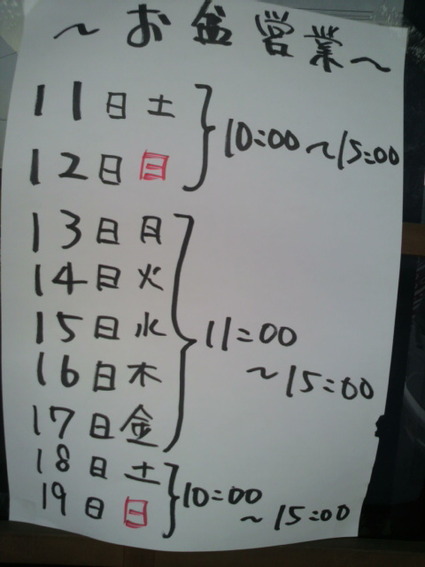 ～お盆営業～
11日 土
12日 日
10:00～15:00
13日 月
14日 火
15日 水
16日 木
17日 金
11:00
～15:00
18日 土
19日 日
10:00
～15:00